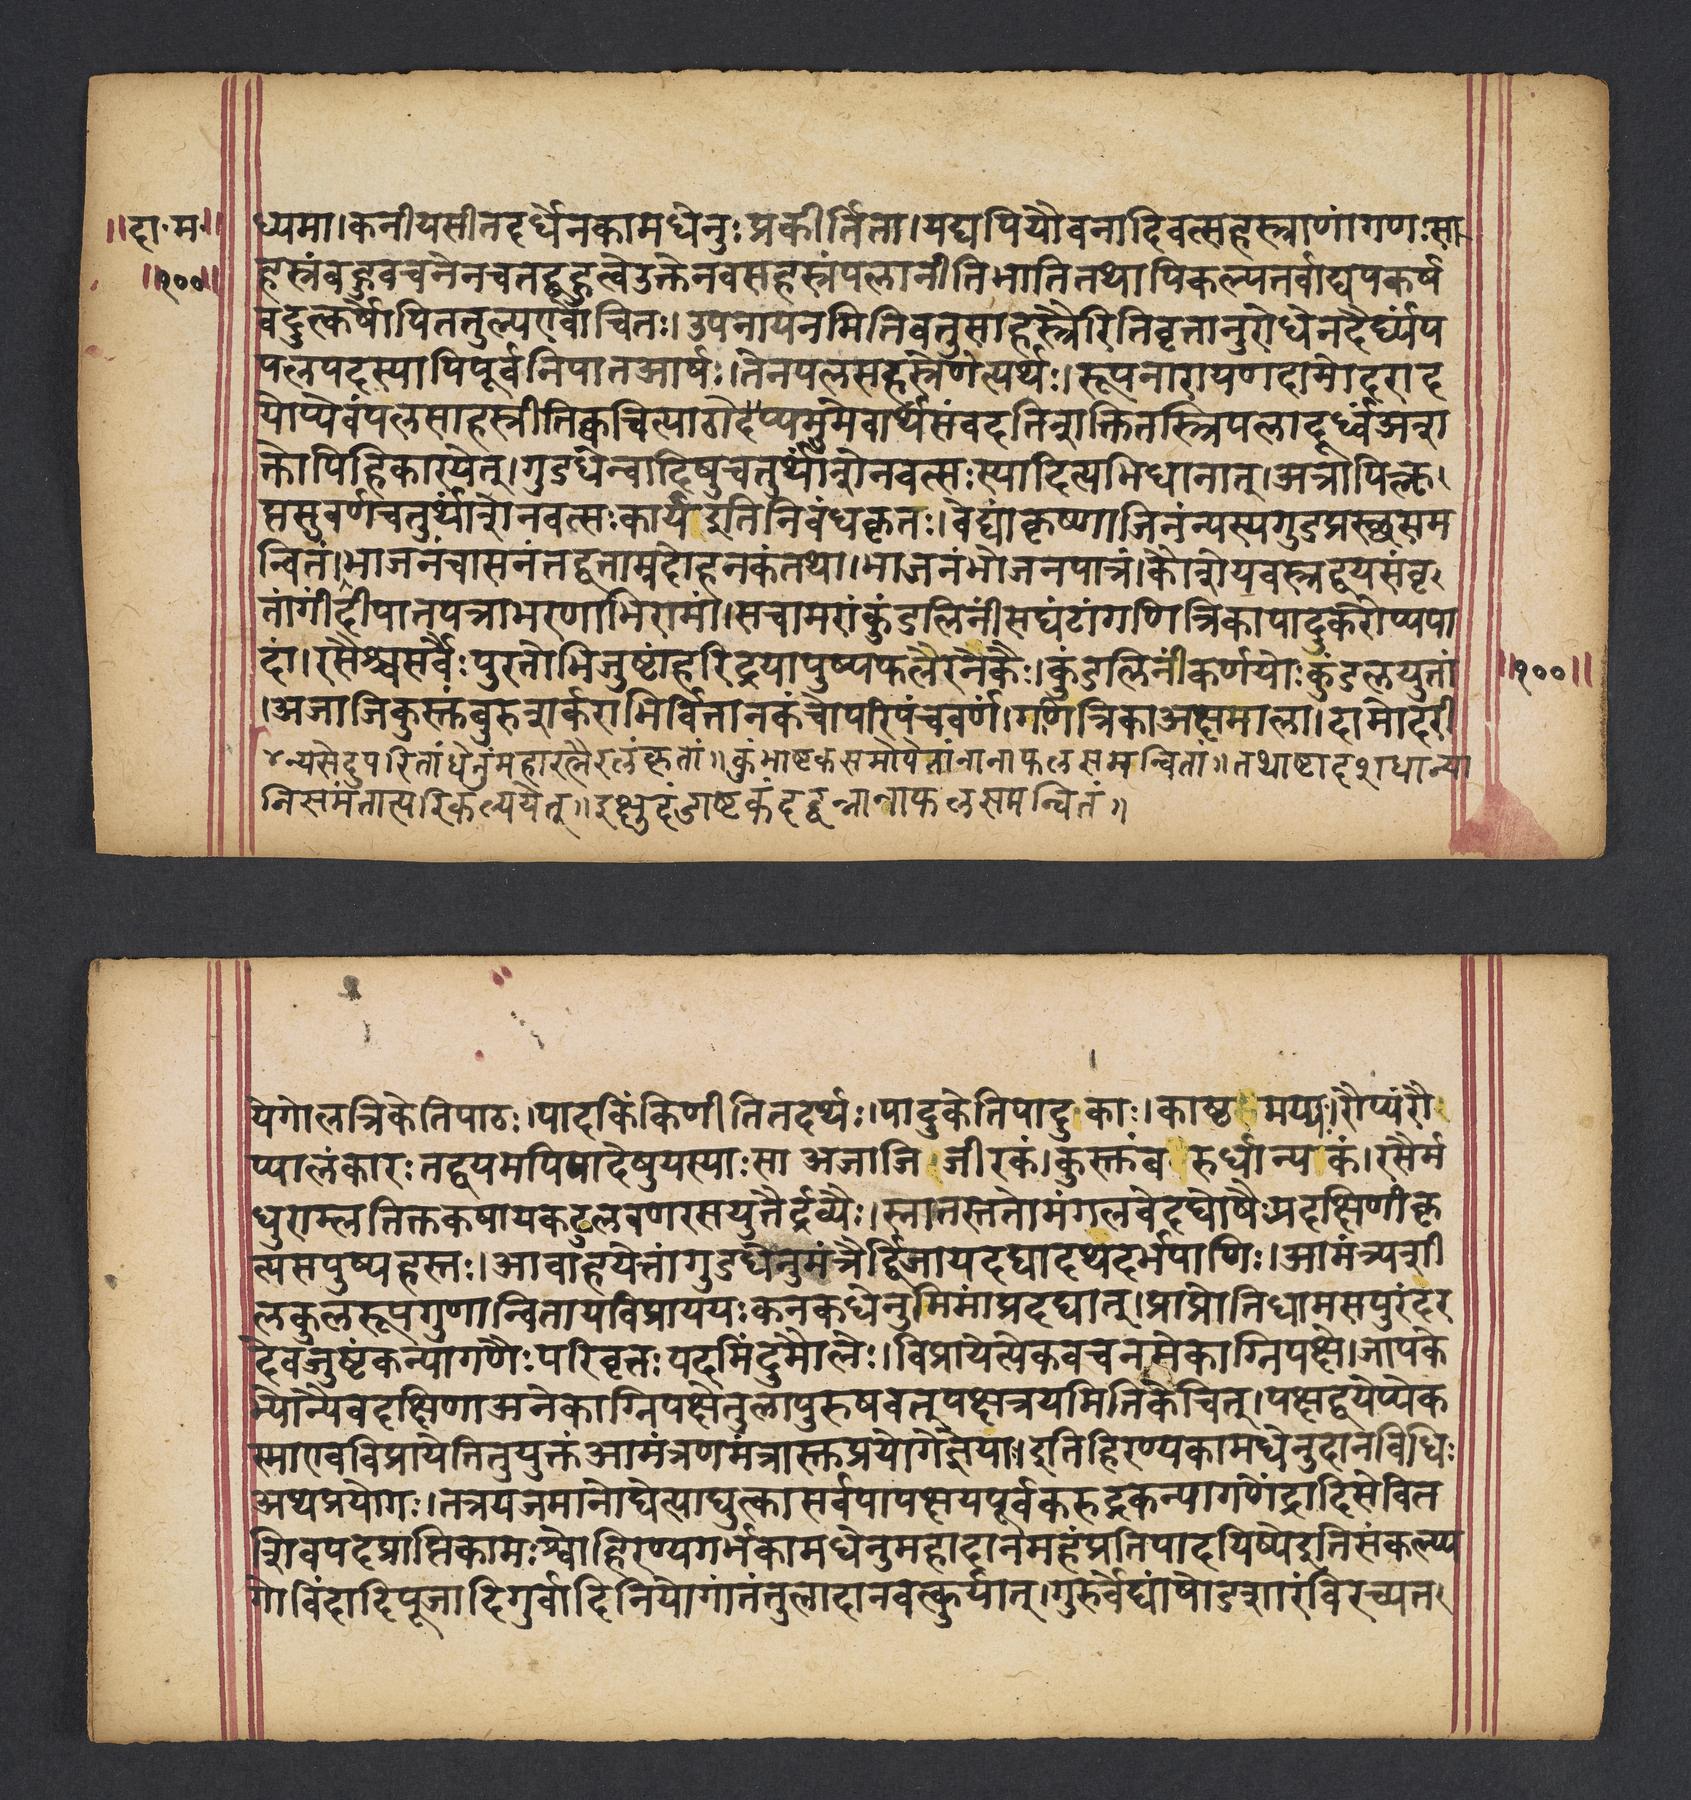 ॥दा॰म॰॥
॥१००॥
ध्यमा।कनीयसीतदर्धेनकामधेनुःप्रकीर्तिता।यद्यपियौवनादिवत्सहस्त्राणांगणःसा
हस्त्रंबहुवचनेनचतद्बहुत्वेउक्तेनवसहस्त्रंपलानीतिभातितथापिकल्पनर्वाद्यपकर्ष
वदुत्कर्षोपिततुल्यएवोचितः।उपनायनमितिवत्तुसाहस्त्रैरितिवृत्तानुरोधेनदैर्घ्यंप
पलपदस्यापिपूर्वनिपातआर्षः।तेनपलसहस्त्रेणेत्यर्थः।रूपनारायणदामोदराद
योप्येवंपलसाहस्त्रीतिक्वचित्पाठादप्यमुमेवार्थंसंवदतिशक्तितस्त्रिपलादूर्ध्वंअश
क्तोपिहिकारयेत्।गुडधेन्वादिषुचतुर्थांशेनवत्सःस्यादित्यभिधानात्।अत्रापित्क्ल
प्तसुवर्णचतुर्थांशेनवत्सःकार्यइतिनिबंधकृतः।वेद्यांकृष्णाजिनंन्यस्यगुडप्रस्छसम
न्वितं।भाजनंचासनंतद्वत्ताम्रदोहनकंतथा।भाजनंभोजनपात्रं।कौशेयवस्त्रद्वयसंवृ
तांगींदीपातपत्राभरणाभिरामां।सचामरांकुंडलिनींसघंटांगणित्रिकापादुकरौप्यपा
दां।रसैश्चसर्वैःपुरतोभिजुष्टांहरिद्रयापुष्पफलैरनेकैः।कुंडलिनींकर्णयोःकुंडलयुतां
॥१००॥
।अजाजिकुस्तुंबुरुशर्कराभिर्वितानकंचोपरिपंचवर्णं।गणित्रिकाअक्षमाला।दामोदरी
४न्यसेदुपरितांधेनुंमहारत्नैरलंकृतां॥कुंभाष्टकसमोपेतांनानाफलसमन्वितां॥तथाष्टादशधान्या
निसमंतात्परिकल्पयेत्॥इक्षुदंडाष्टकंतद्वन्नानाफलसमन्वितं॥
येगोलत्रिकेतिपाठः।पादकिंकिणीतितदर्थः।पादुकेतिपादुकाः।काष्ठमय्यः।रौप्यंरौ
प्यालंकारःतद्वयमपिपादेषुयस्याःसाअजाजिजीरकं।कुस्तुंबरुर्धान्यकं।रसैर्म
धुराम्लतिक्तकषायकटुलवणरसयुतैर्द्रव्यैः।स्नातस्ततोमंगलवेदघोषैःप्रदक्षिणीकृ
त्यसपुष्पहस्तः।आवाहयेत्तांगुडधेनुमंत्रैर्द्विजायदद्यादथदर्भपाणिः।आमंत्र्यशी
लकुलरूपगुणान्वितायविप्राययःकनकधेनुमिमांप्रदद्यात्।प्राप्नोतिधामसपुरंदर
देवजुष्टंकन्यागणैःपरिवृतःपदमिंदुमौलेः।विप्रायेत्येकवचनमेकाग्निपक्षे।जापके
भ्योन्यैवदक्षिणाअनेकाग्निपक्षेतुलापुरुषवत्पक्षत्रयमितिकेचित्।पक्षद्वयेप्येक
स्माएवविप्रायेतितुयुक्तंआमंत्रणमंत्रास्क्तप्रयोगेज्ञेयाः।इतिहिरण्यकामधेनुदानविधिः
अथप्रयोगः।तत्रयजमानोद्येत्याद्युत्कासर्वपापक्षयपूर्वकरुद्रकन्यागणेंद्रादिसेवित
शिवपदप्राप्तिकामःश्वोहिरण्यगर्भकामधेनुमहादानमहंप्रतिपादयिष्येइतिसंकल्प्य
गोविंदादिपूजादिगुर्वादिनियोगांतंतुलादानवत्कुर्यात्।गुरुर्वेद्यांषोडशारंविरच्यत